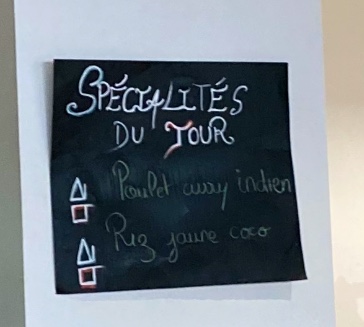 SPÉCIALITÉS
DU JOUR
Poulet curry indien
Riz jaune coco